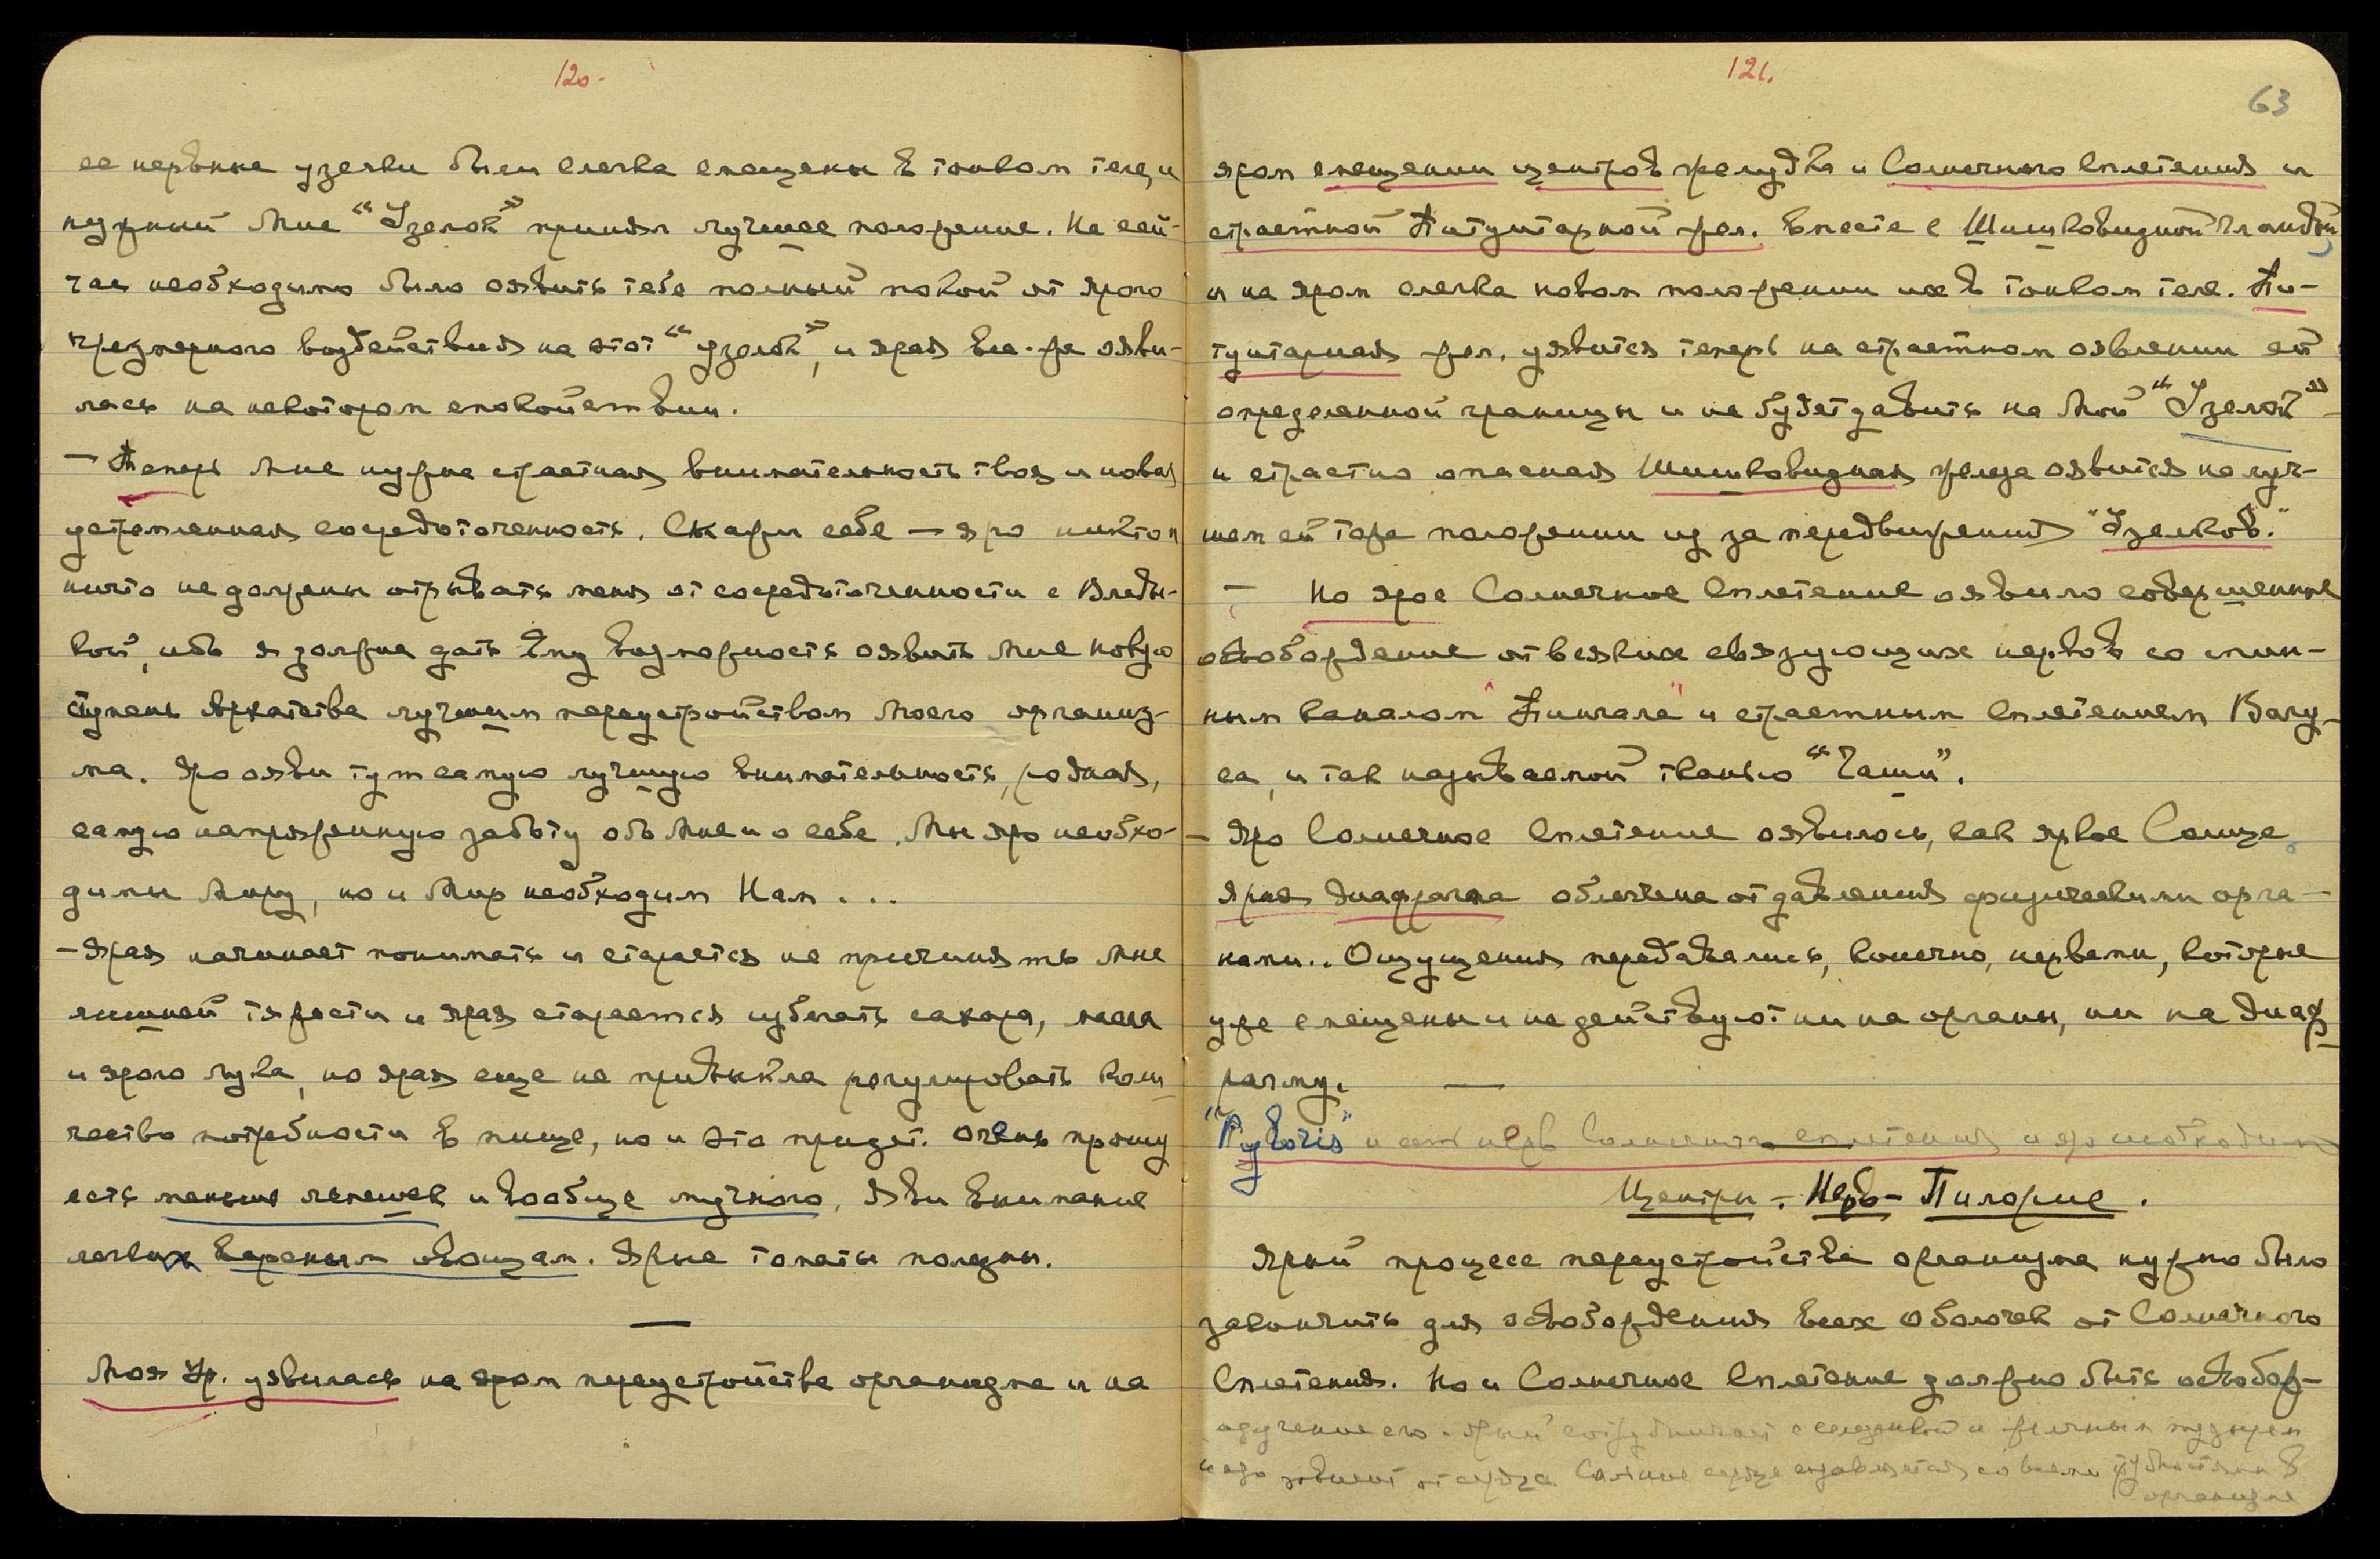 120.
ее нервные узелки были слегка смещены в тонком теле, и
нужный Мне "Узелок" принял лучшее положение. Но сей-
час необходимо было оявить тебе полный покой от ярого
чрезмерного воздействия на этот "узелок", и ярая все-жеояви-
лась на некотором спокойствии.
— Теперь Мне нужна страстная внимательность твоя и новая
устремленная сосредоточенность. Скажи себе — яро никто и
ничто не должны отрывать меня от сосредоточенности с Влады-
кой, ибо я должна дать Ему возможность оявить Мне новую
ступень Архатства лучшим переустройством Моего организ-
ма. Яроояви тут самую лучшую внимательность, родная,
самую напряженную заботу обо Мне и о себе. Мы яро необхо-
димы Миру, но и Мир необходим Нам...
— Ярая начинает понимать и старается не причинять Мне
лишней тяжести и ярая старается избегать сахара, масла
и ярого лука, но ярая еще не привыкла регулировать коли-
чество потребности в пище, но и это придет. Очень прошу
есть меньше лепешек и вообще мучного, яви внимание
легким вареным овощам. Ярые томаты полезны.
—
Моя Ур. уявилась на яром переустройстве организма и на
121.
63
яром смещении центров желудка и Солнечного Сплетения и
страстной Питуитарной жел. вместе с Шишковидной Гландой
и на яром слегка новом положении их в тонком теле. Пи-
туитарная жел. уявится теперь на страстном оявлении ей
определенной границы и не будет давить на Мой "Узелок" —
и страстно опасная Шишковидная железа оявится на луч-
шем ей тоже положении из за передвижения "Узелков."
— Но ярое Солнечное Сплетение оявило совершенное
освобождение от всяких связующих нервов со спин-
ным каналом "Пингала" и страстным Сплетением Вагу-
са, и так называемой тканью "Чаши".
— Яро Солнечное Сплетение оявилось, как яркое Солнце.
Ярая диафрагма облегчена от давления физическими орга-
нами.. Ощущения передавались, конечно, нервами, которые
уже смещены и не действуют ни на органы, ни на диаф-
рагму. —
"Pyloris" и есть нерв Солнечного сплетения и яро необходим
Центры - Нерв - Пилорис.
Ярый процесс переустройства организма нужно было
закончить для освобождения всех оболочек от Солнечного
Сплетения. Но и Солнечное Сплетение должно быть освобож-
его. Ярый сотрудничает с селезенкой и желчным пузырем
и яро от сердца. Солнце сердце со всеми в
организме